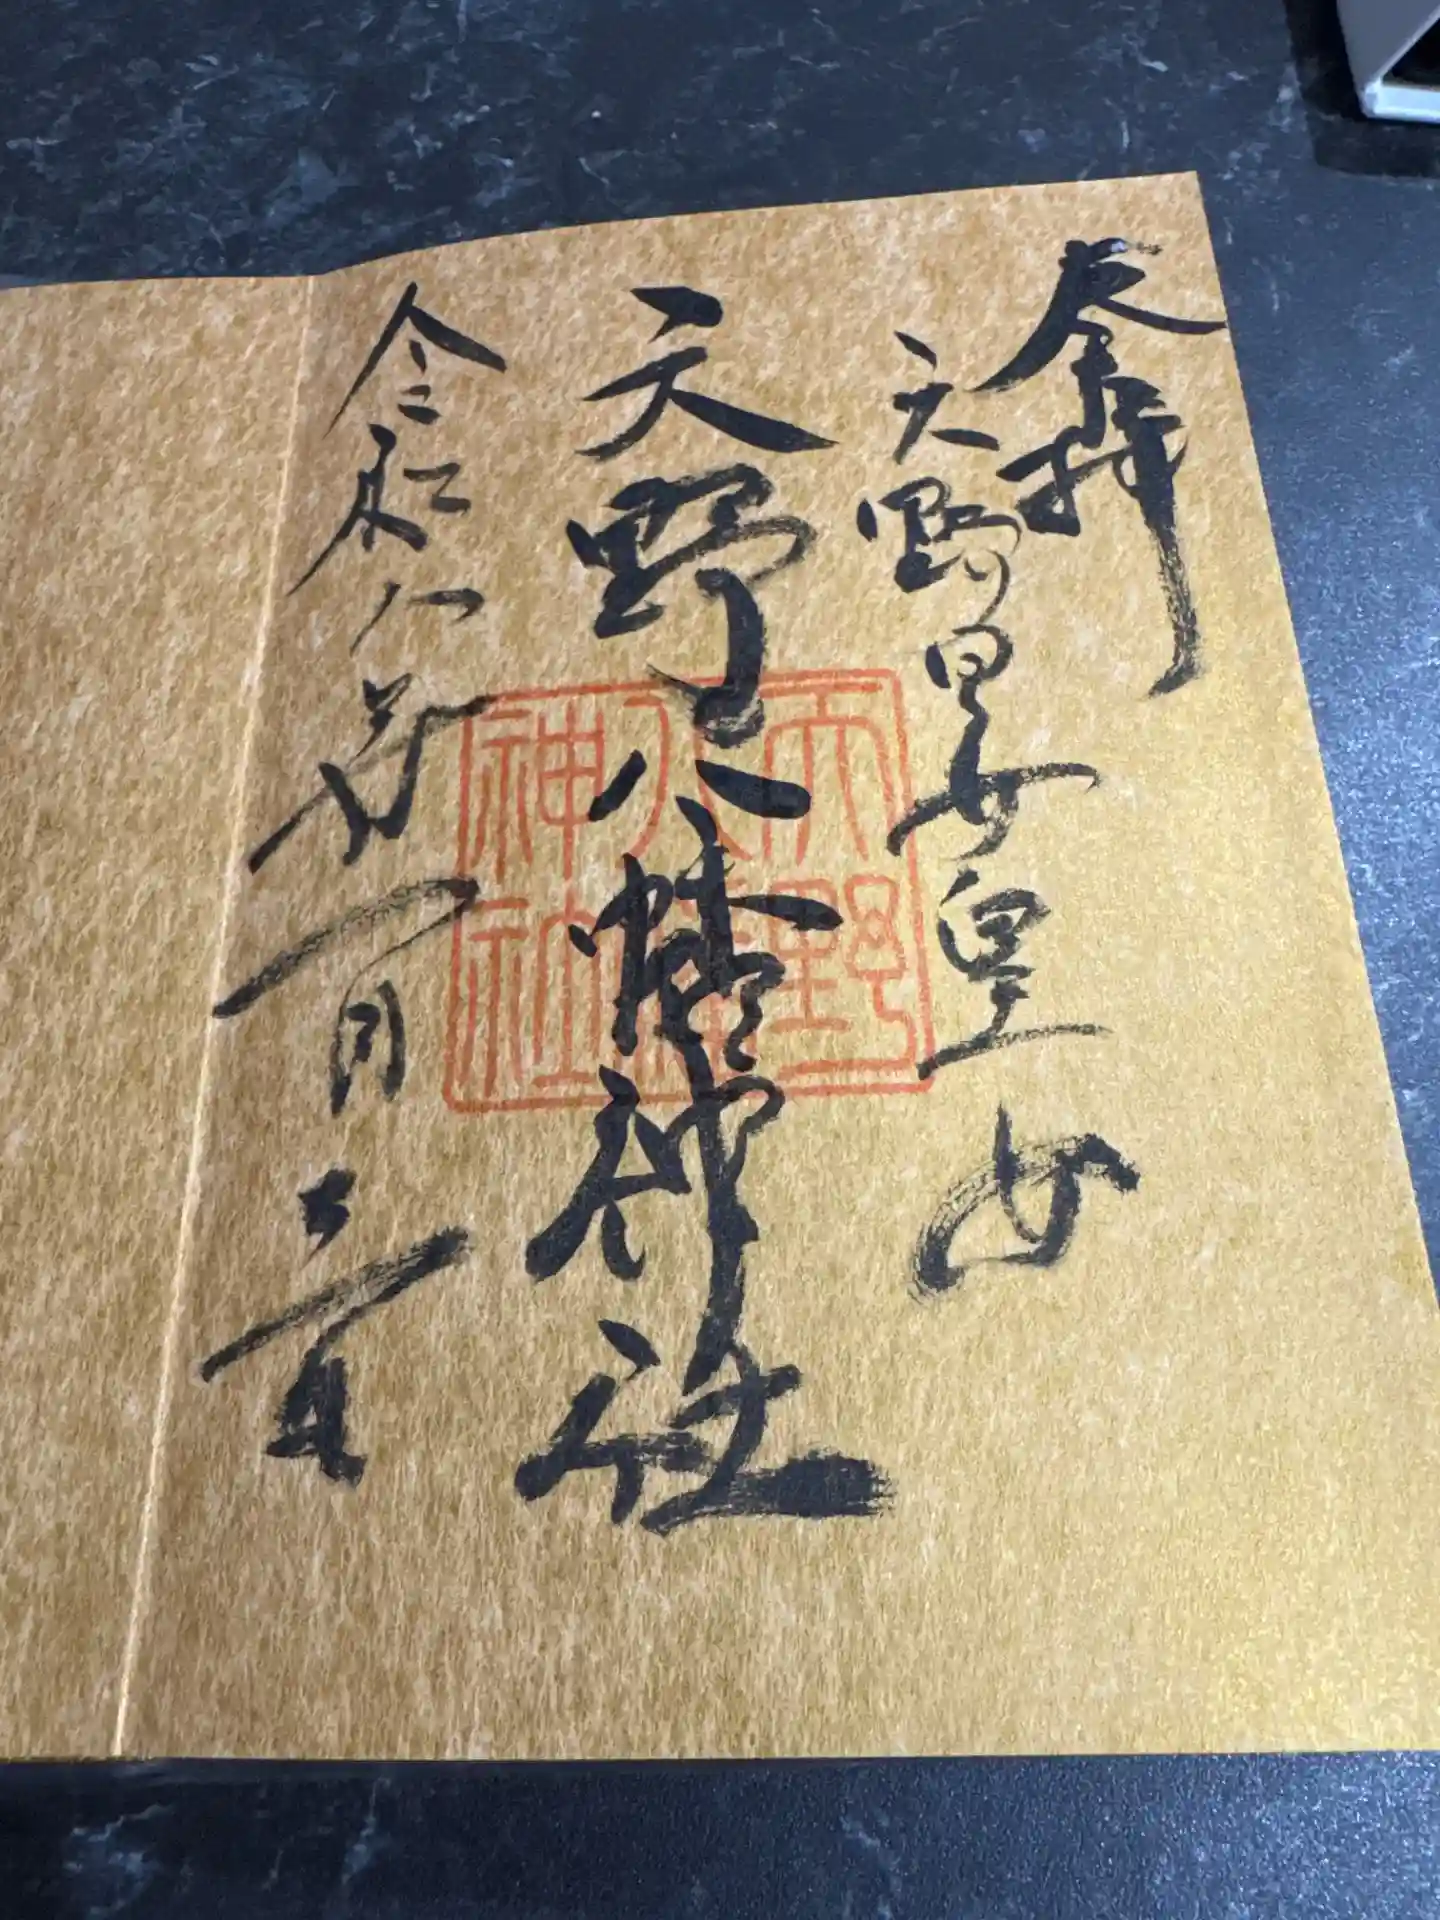 奉拝
天野 皇女
天野八幡神社
令和八年一月三日
天野
八幡
神社